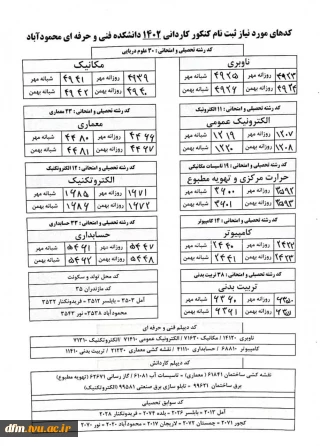 کدهای مورد نیاز ثبت نام کنکور کاردانی ۱۴۰۲ دانشکده فنی و حرفه ای محمودآباد
کد رشته تحصیلی و امتحانی: ۳۰ علوم دریایی
ناوبری
مکانیک
۴۹۲۳ روزانه مهر ۴۹۲۵ شبانه مهر
۴۹۲۴ روزانه بهمن ۴۹۲۶ شبانه بهمن
۴۹۳۹ روزانه مهر ۴۹۴۱ شبانه مهر
۴۹۴۰ روزانه بهمن ۴۹۴۲ شبانه بهمن
کد رشته تحصیلی و امتحانی: ۱۱ الکترونیک
الکترونیک عمومی
۱۲۰۷ روزانه مهر ۱۲۱۹ شبانه مهر
۱۲۰۸ روزانه بهمن ۱۲۲۰ شبانه بهمن
کد رشته تحصیلی و امتحانی: ۴۳ معماری
معماری
روزانه مهر ۴۴۸۰ شبانه مهر
روزانه بهمن ۴۴۸۱ شبانه بهمن
کد رشته تحصیلی و امتحانی: ۱۹ تاسیسات مکانیکی
حرارت مرکزی و تهویه مطبوع
۳۵۹۲ روزانه مهر ۳۶۰۰ شبانه مهر
۳۵۹۳ روزانه بهمن ۳۶۰۱ شبانه بهمن
کد رشته تحصیلی و امتحانی: ۱۲ الکتروتکنیک
الکتروتکنیک
۱۹۷۱ روزانه مهر ۱۹۸۵ شبانه مهر
۱۹۷۲ روزانه بهمن ۱۹۸۶ شبانه بهمن
کد رشته تحصیلی و امتحانی: ۱۳ کامپیوتر
کامپیوتر
۲۴۲۲ روزانه مهر ۲۴۴۰ شبانه مهر
۲۴۲۳ روزانه بهمن ۲۴۴۱ شبانه بهمن
کد رشته تحصیلی و امتحانی: ۳۳ حسابداری
حسابداری
۵۴۴۷ روزانه مهر ۵۴۶۱ شبانه مهر
۵۴۴۸ روزانه بهمن ۵۴۶۲ شبانه بهمن
کد رشته تحصیلی و امتحانی: ۳۸ تربیت بدنی
تربیت بدنی
روزانه مهر ۹۳۶۰ شبانه مهر
روزانه بهمن ۹۳۶۱ شبانه بهمن
کد محل تولد و سکونت
کد مازندران ۳۵
آمل ۳۵۰۳ - بابلسر ۳۵۱۲ - فریدونکنار ۳۵۳۲
محمودآباد ۳۵۳۸ - نور ۳۵۴۳
کد دیپلم فنی و حرفه ای
ناوبری ۱۴۱۲۰ / مکانیک ۷۱۶۳۰ / الکترونیک عمومی ۷۱۴۱۰ / الکتروتکنیک ۷۱۳۱۰
کامپیوتر ۶۸۸۱۰ / حسابداری ۴۱۱۱۰ / نقشه کشی معماری ۲۱۲۳۰ / تربیت بدنی ۱۱۴۱۰
کد دیپلم کاردانش
نقشه کشی ساختمان (معماری) ۶۱۸۴۱ - تاسیسات آب ۶۱۰۸۱ / گاز رسانی ۶۲۶۷۱ (تهویه مطبوع)
برق ساختمان ۹۹۶۲۱ - تابلو سازی برق صنعتی ۹۹۵۸۱ (الکتروتکنیک)
کد سوابق تحصیلی
آمل ۲۰۱۲ - بابلسر ۲۰۲۶ - بلده ۲۰۷۴ - فریدونکنار ۲۰۲۸
کجور ۲۰۷۱ - چمستان ۲۰۷۲ - لاریجان ۲۰۱۷ - محمودآباد ۲۰۲۰ - نور ۲۰۷۰
mfm.tvu.ac.ir